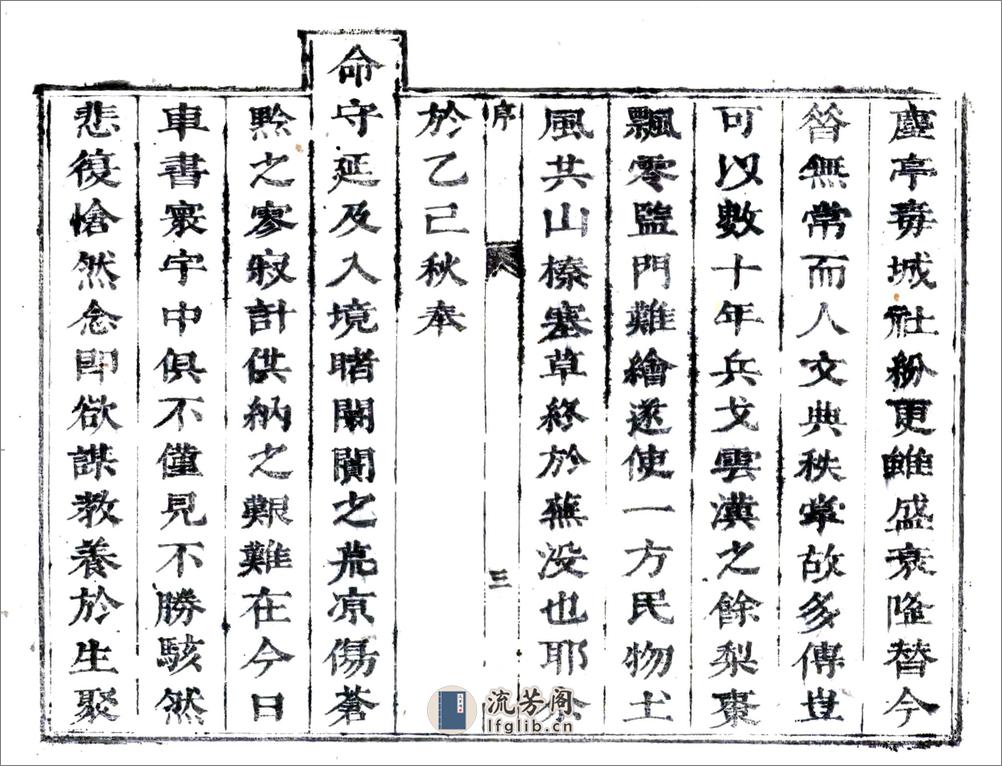 塵亭毒城社粉更雖盛衰隆替今
昝無常而人文典秩掌故多傳豈
可以數十年兵戈雲漢之餘梨棗
飄零監門難繪遂使一方民物土
風共山榛塞草終於蕪没也耶余
序 三
於乙巳秋奉
命守延及入境睹闤闠之荒凉傷蒼
黔之寥寂計供納之艱難在今日
車書寰宇中俱不僅見不勝駭然
悲復愴然念即欲謀教養於生聚
流芳阁
lfglib.cn